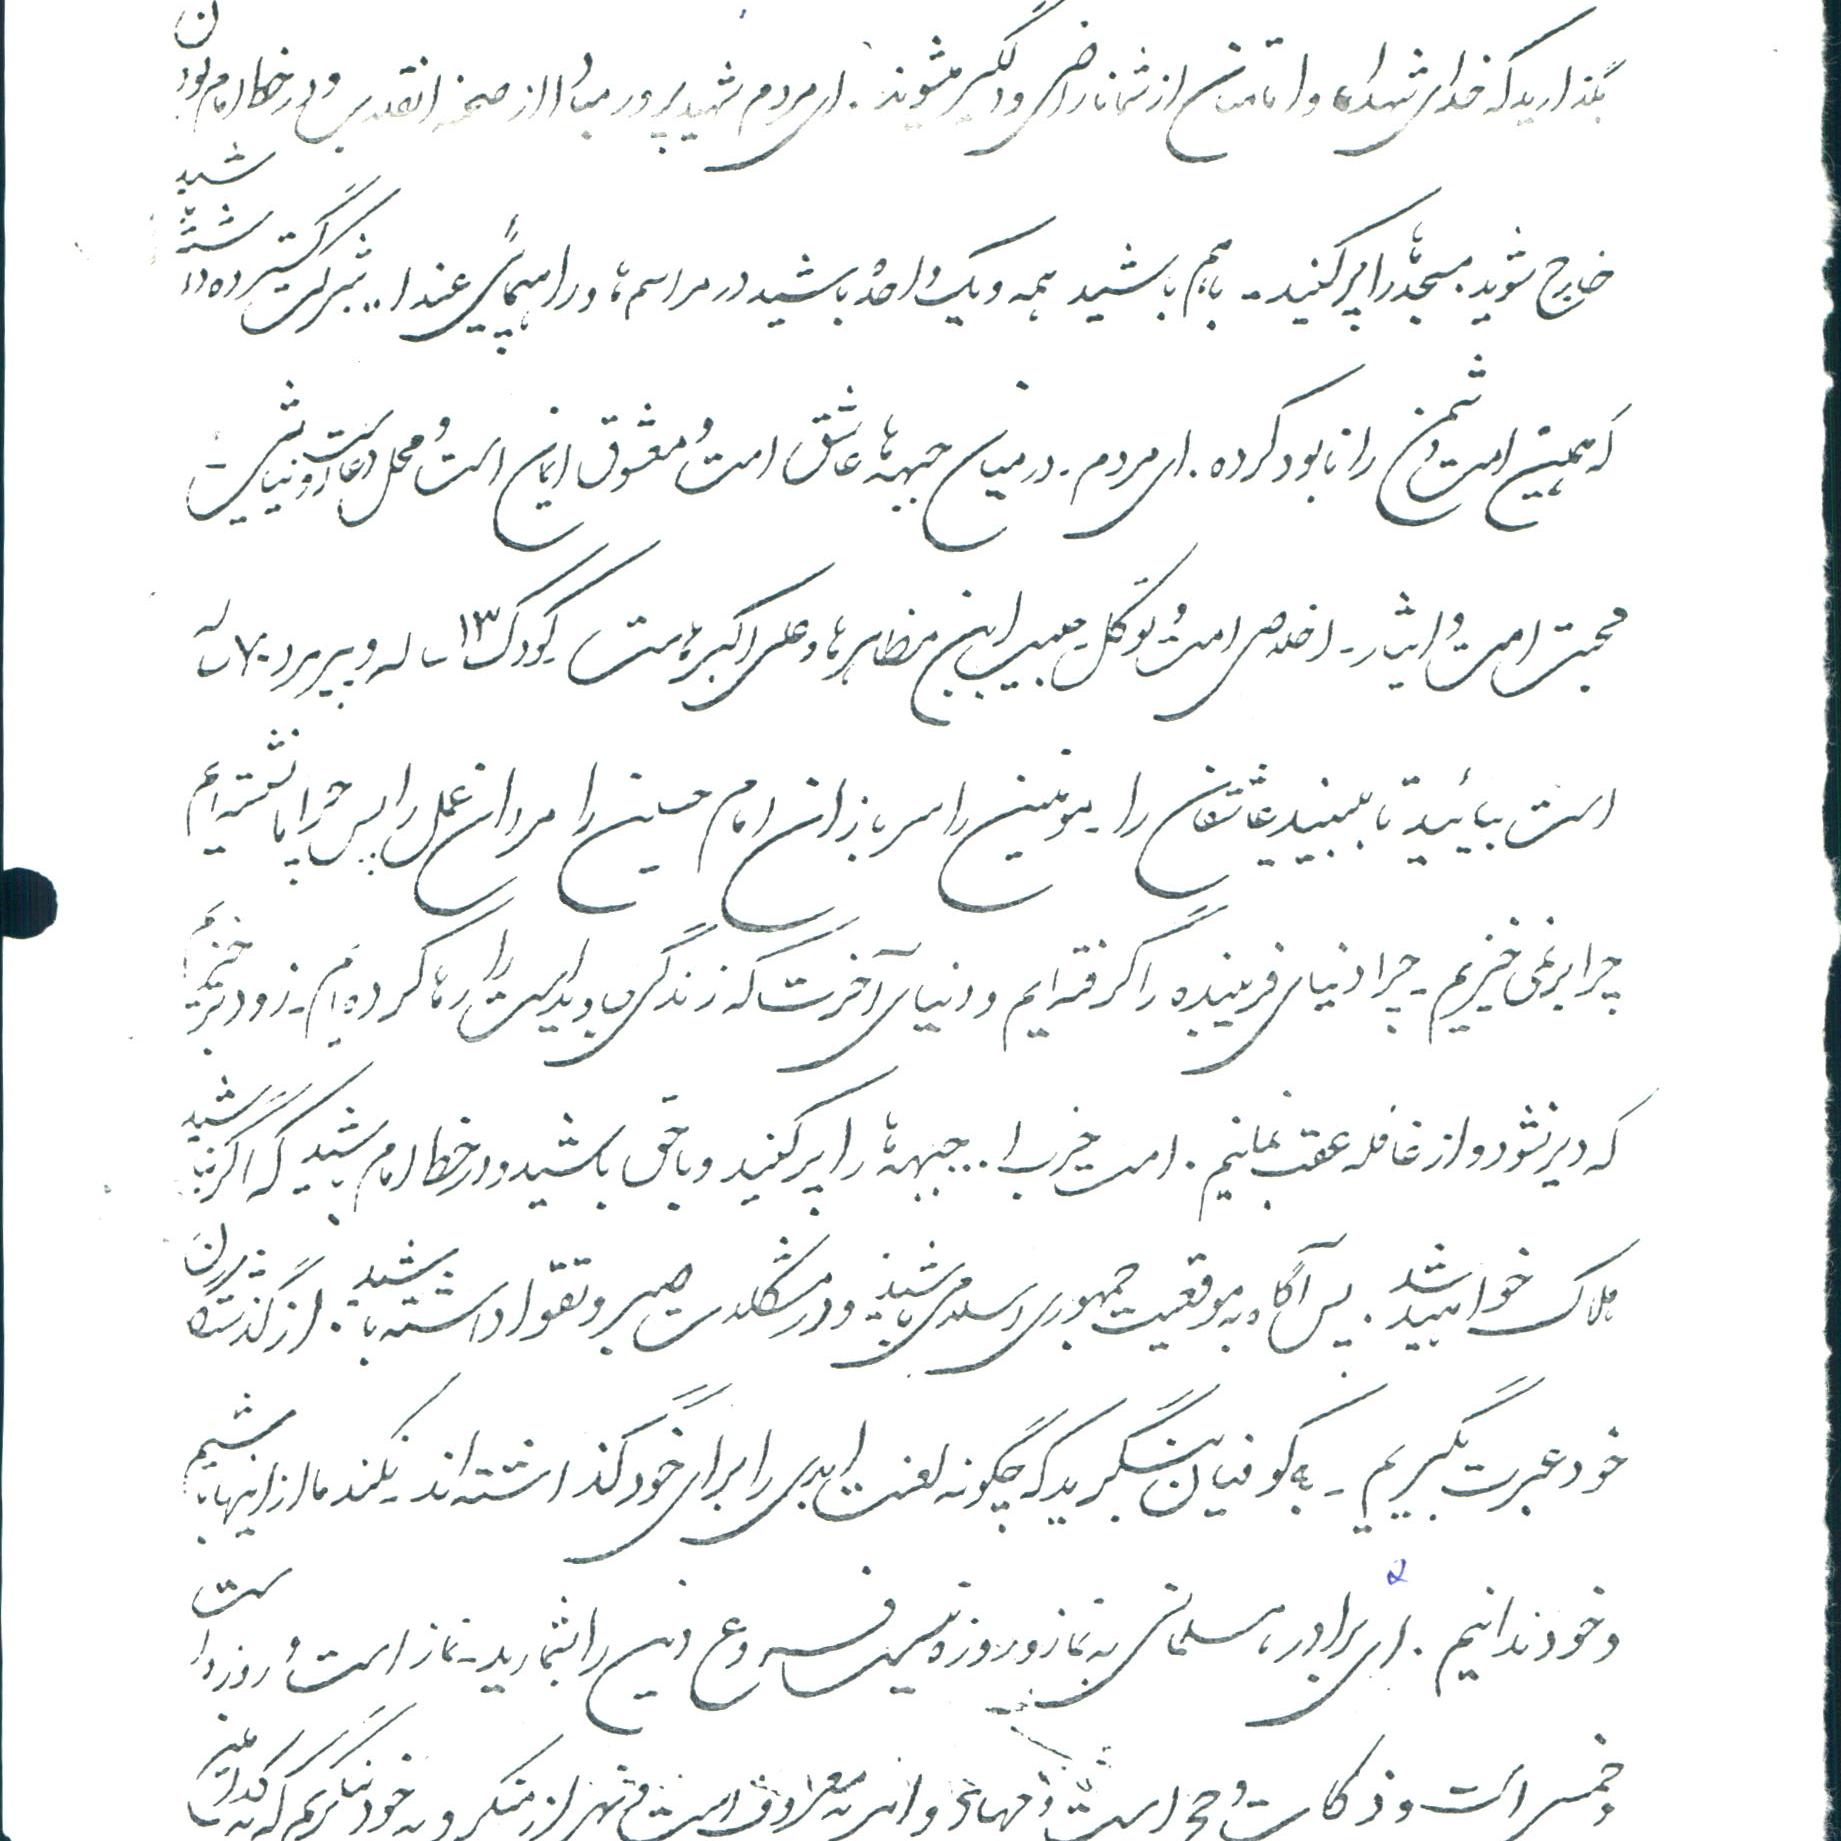 بگذارید که خدای شهدا و امامتان از شما ناراضی و دلگیر میشوند. ای مردم شهید پرور مبادا از صحنه انقلاب و در خط امام بودن
خارج شوید. مسجدها را پر کنید - باهم باشید همه ویک واحد باشید در مراسم ها و راهپیمائی عبدا.. شرکت گسترده داشته باشید
که همین است دشمن را نابود کرده. ای مردم - در میان جبهه ها عاشق است و معشوق ایمان است و محل دعا و نیایش -
محبت است و ایثار - اخلاص است و توکل حبیب ابن مظاهرها و علی اکبرهاست کودک ۱۳ ساله و پیرمرد ۷۰ ساله
است بیائید تا ببینید عاشقان را - مومنین را سربازان امام حسین را مردان عمل را پس چرا ما نشسته ایم
چرا برنمی خیزیم - چرا دنیای فریبنده را گرفته ایم و دنیای آخرت که زندگی جاوید است را رها کرده ایم - زودتر بر خیزیم
که دیر نشود و از غافله عقب نمانیم. امت حزب ا.. جبهه ها را پر کنید و باحق باشید و در خط امام باشید که اگر نباشید
هلاک خواهید شد. پس آگاه به موقعیت جمهوری اسلامی باشید و در مشکلات صبر و تقوا داشته باشید. از گذشتگان
خود عبرت بگیریم - به کوفیان بنگرید که چگونه لعنت ابدی را برای خود گذاشته اند - نکند ما از اینها باشیم
و خود ندانیم. ای برادر، مسلمانی به نماز و روزه نیست فروع دین را بشمارید - نماز است و روزه است
و خمس است و زکات و حج است و جهاد و امر به معروف است و نهی از منکر و به خود بنگریم که به کدام